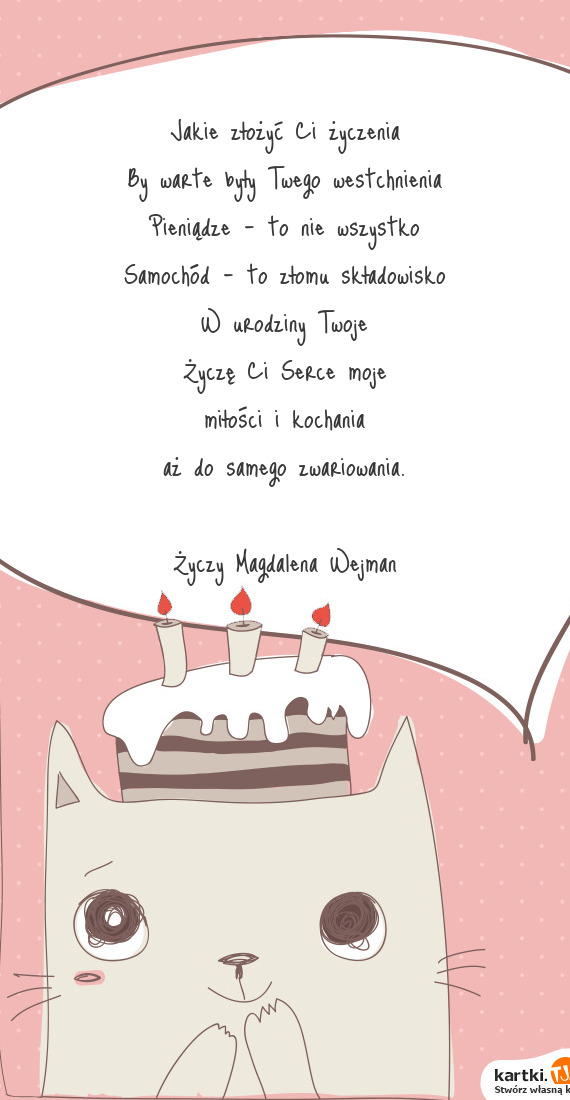 Jakie złożyć Ci życzenia
By warte były Twego westchnienia
Pieniądze - to nie wszystko
Samochód - to złomu składowisko
W urodziny Twoje
Życzę Ci Serce moje
miłości i kochania
aż do samego zwariowania.
Życzy Magdalena Wejman
kartki.TJ
Stwórz własną k